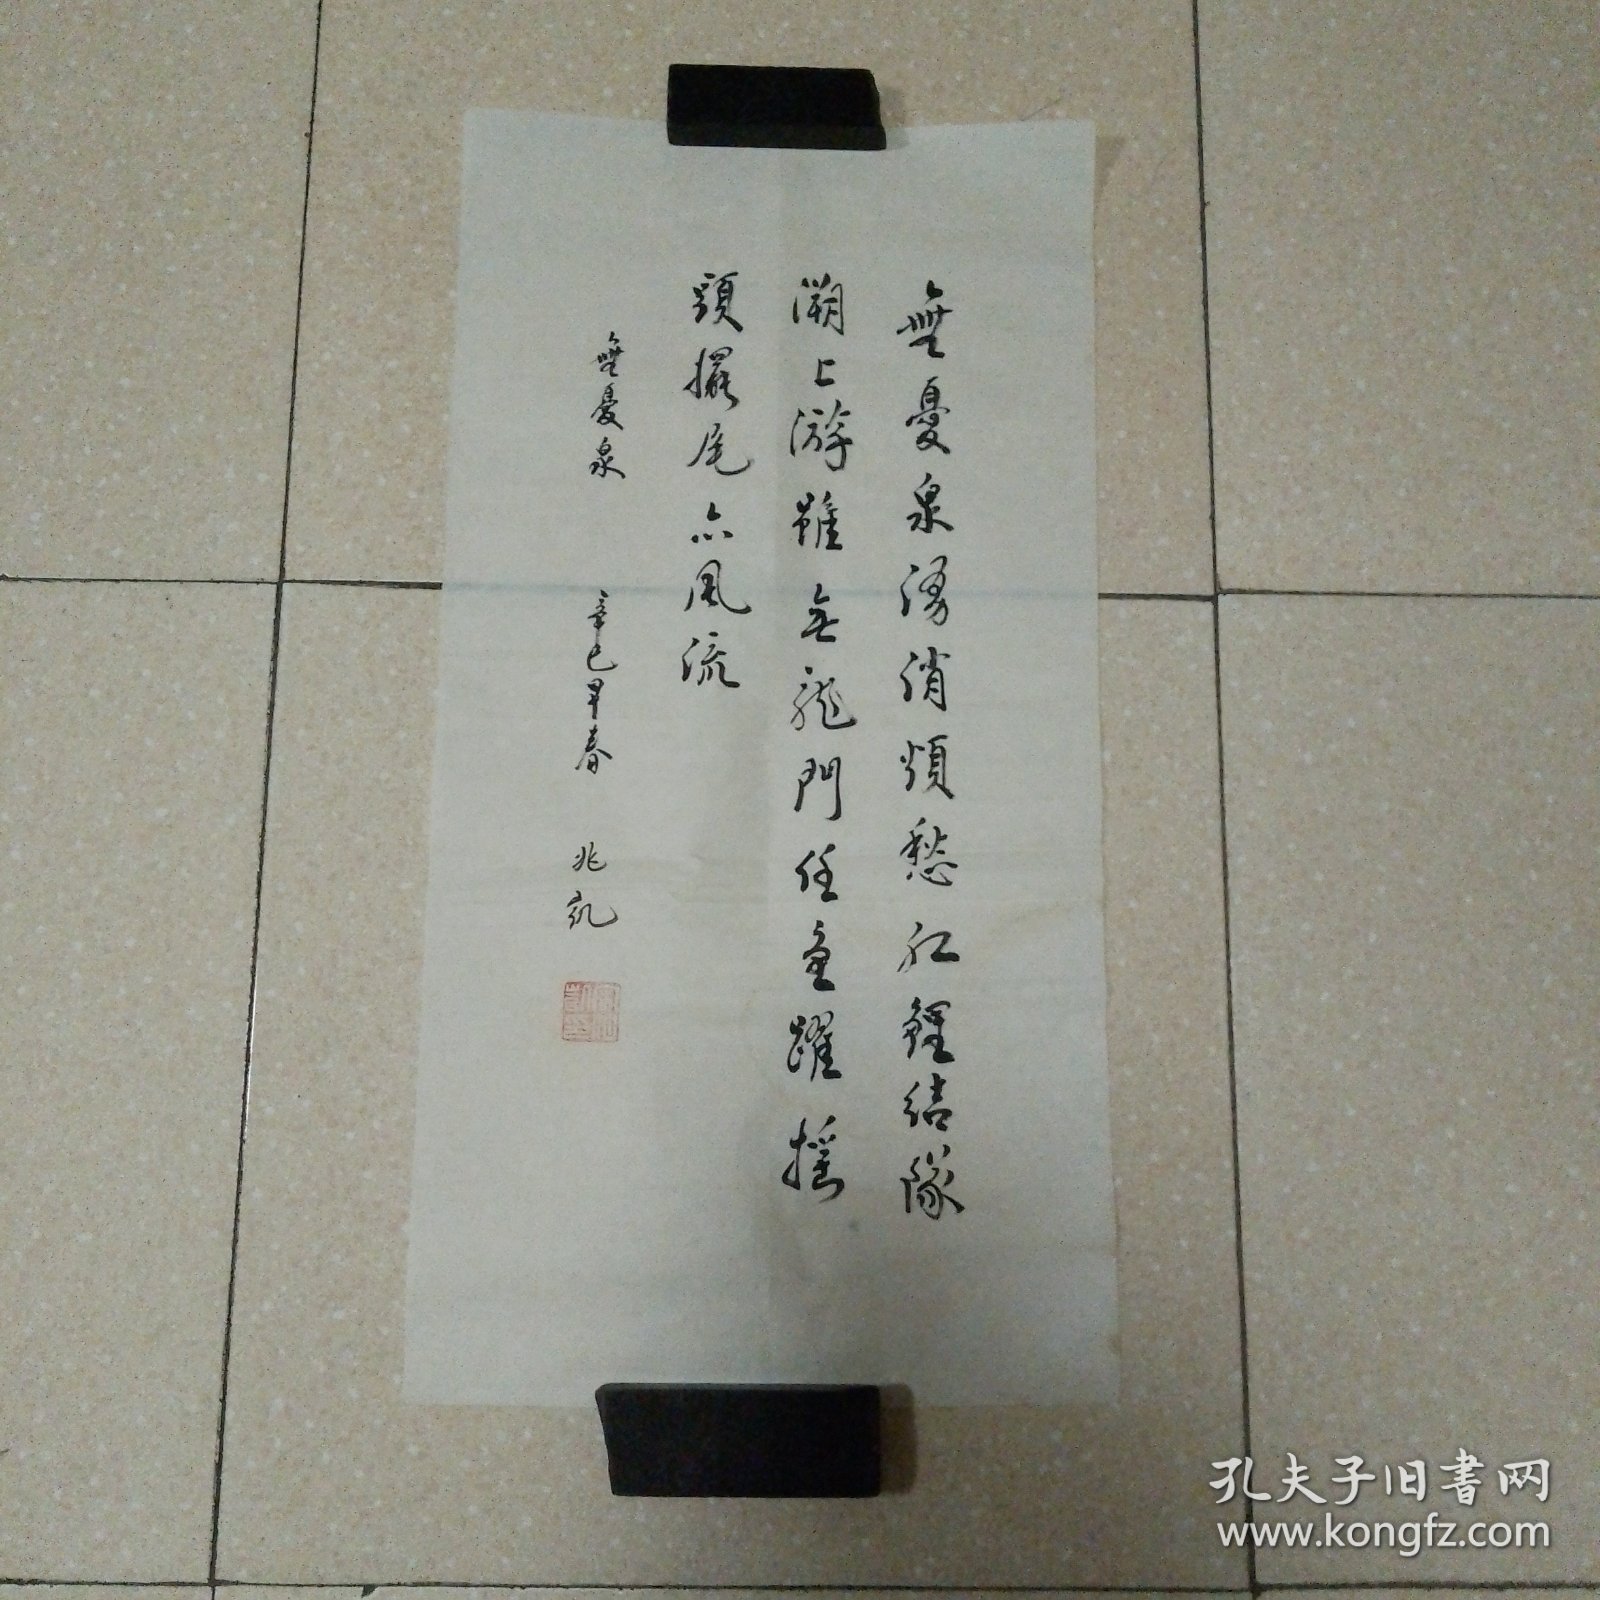 無憂泉湧消煩愁紅鯉結隊
溯上游雖無龍門任重躍搖
頭擺尾亦風流
無憂泉 辛巳早春 兆凱
孔夫子旧书网
www.kongfz.com